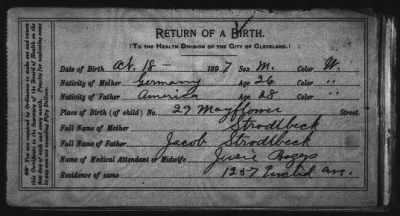 RETURN OF A BIRTH.
(TO THE HEALTH DIVISION OF THE CITY OF CLEVELAND.)
Date of Birth Oct. 18 - 1897 Sex M. Color W.
Nativity of Mother Germany Age 26 Color "
Nativity of Father America Age 28 Color "
Place of Birth (of child) No. 29 Mayflower Street.
Full Name of Mother Strodtbeck
Full Name of Father Jacob Strodtbeck
Name of Medical Attendant or Midwife Josie Rogers
Residence of same 1257 Euclid av.